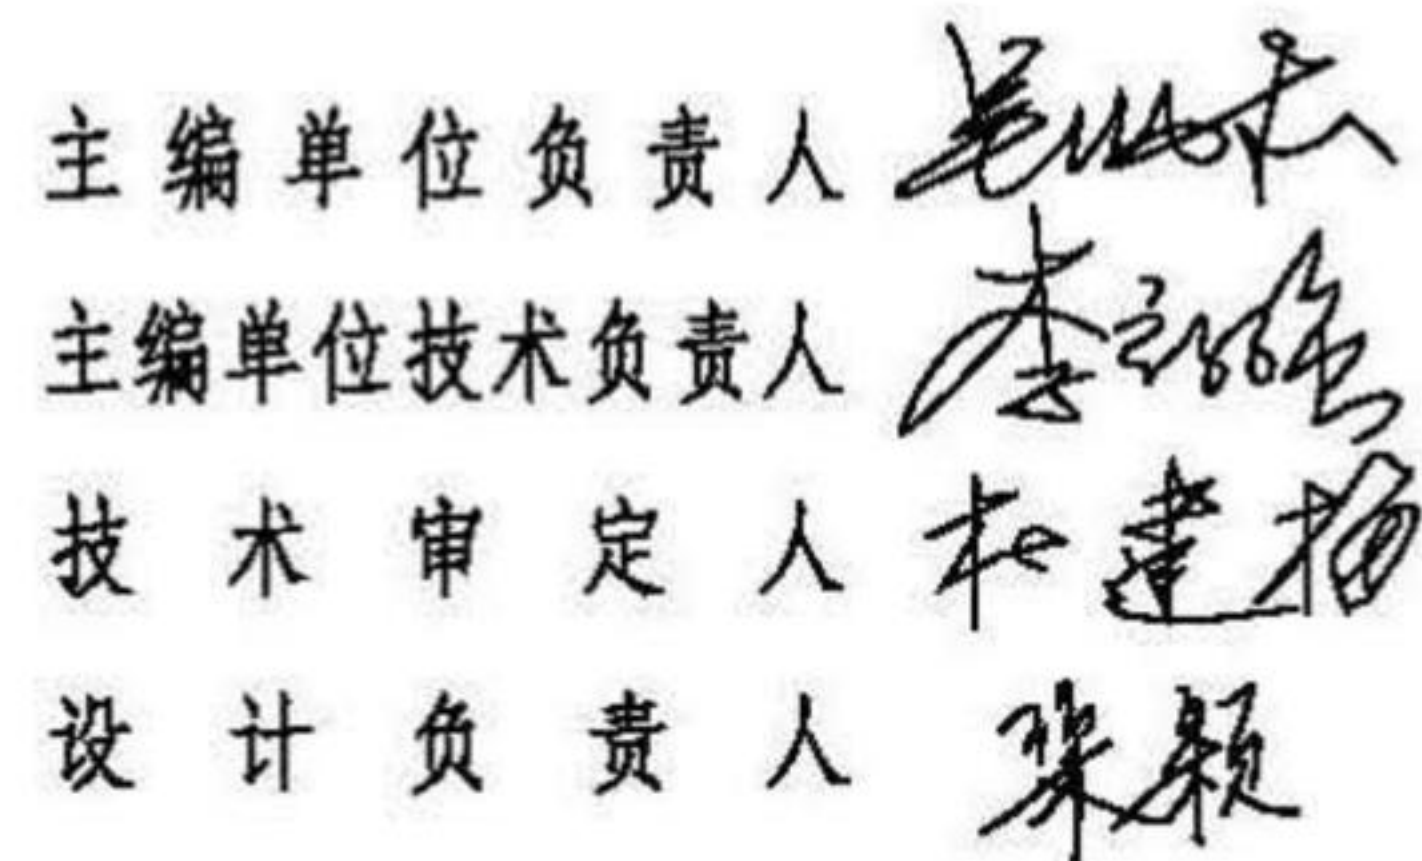 主编单位负责人
主编单位技术负责人 李
技术审定人 杜建扬
设计负责人 梁颖